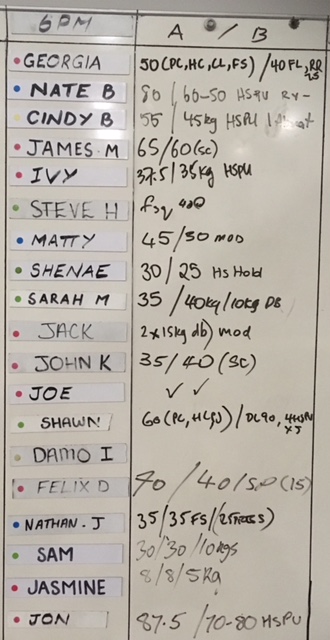 6PM A / B
GEORGIA 50 (PC, HC, CL, FS) / 40 FL, RR
NATE B 80 / 60-50 HSPU
CINDY B 55 / 45kg HSPU
JAMES. M 65/60 (SC)
IVY 37.5/35kg HSPU
STEVE H fsq
MATTY 45/50 MOD
SHENAE 30/25 Hs Hold
SARAH M 35 / 40kg/10kg DB
JACK 2x15kg db) mod
JOHN K 35/40 (SC)
JOE ✓ ✓
SHAWN 60 (PC,
DAMO I
FELIX D 70 / 40/ (15)
NATHAN. J 35/35FS/
SAM 30/30/10kgs
JASMINE 8/8/5kg
JON 87.5 / 70-80 HSPU